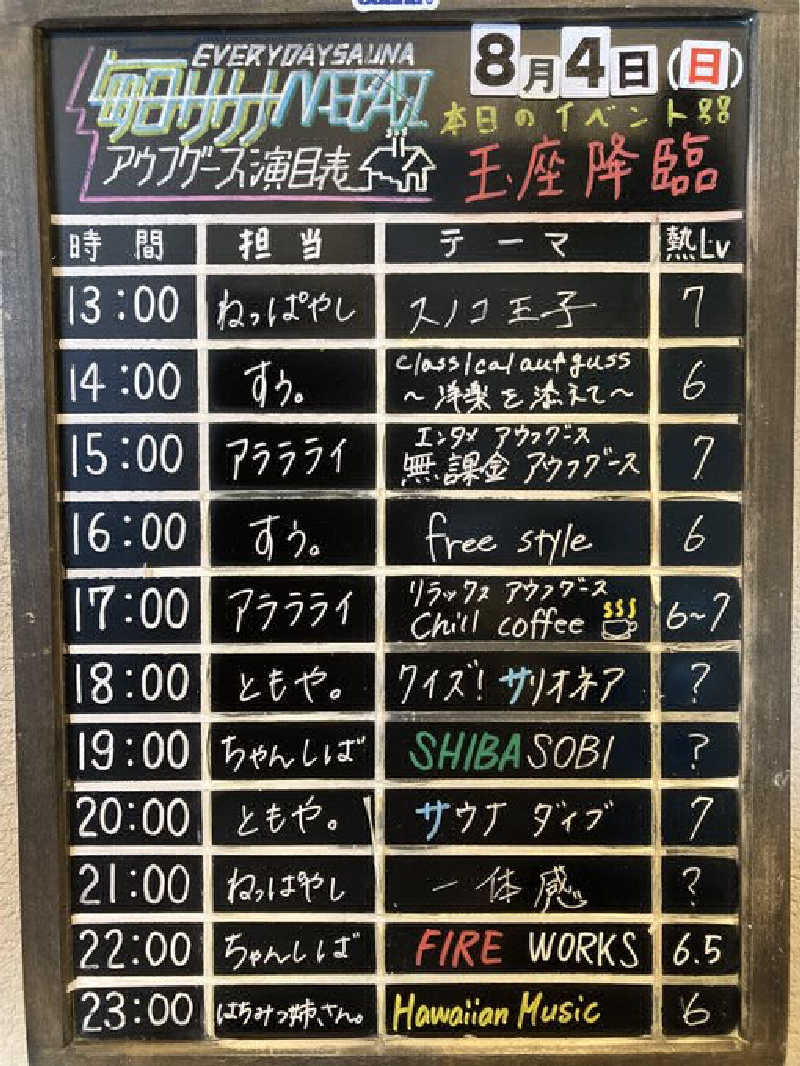 EVERYDAYSAUNA
毎日サウナ MAEBASHI
8月4日(日)
本日のイベント
アウフグース演目表
玉座降臨
時間 担当 テーマ 熱Lv
13:00 ねっぱやし スノコ王子 7
14:00 すぅ。 classical aufguss
～洋楽を添えて～ 6
15:00 アラララライ エンタメ アウフグース
無課金 アウフグース 7
16:00 すぅ。 free style 6
17:00 アラララライ リラックス アウフグース
Chill coffee 6~7
18:00 ともや。 クイズ!サリオネア ?
19:00 ちゃんしば SHIBA SOBI ?
20:00 ともや。 サウナ ダイブ 7
21:00 ねっぱやし 一体感 ?
22:00 ちゃんしば FIRE WORKS 6.5
23:00 はちみつ姉さん。 Hawaiian Music 6